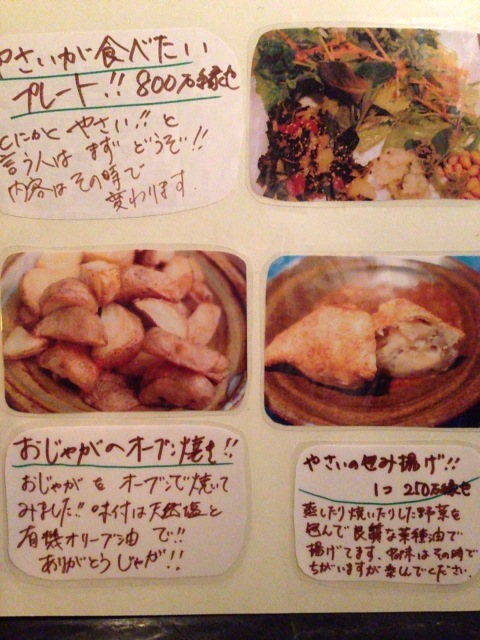 やさいが食べたい
プレート!! 800万縁也
とにかく やさい!! と
言う人は まず どうぞ!!
内容はその時で
変わります.
おじゃがのオーブン焼き!!
おじゃがを オーブンで焼いて
みました!! 味付は天然塩と
有機オリーブ油 で!!
ありがとうじゃが!!
やさいの包み揚げ!!
1コ 250万縁也
蒸したり焼いたりした野菜を
包んで良質な菜種油で
揚げてます. 物はその時で
ちがいますが楽しんでください.